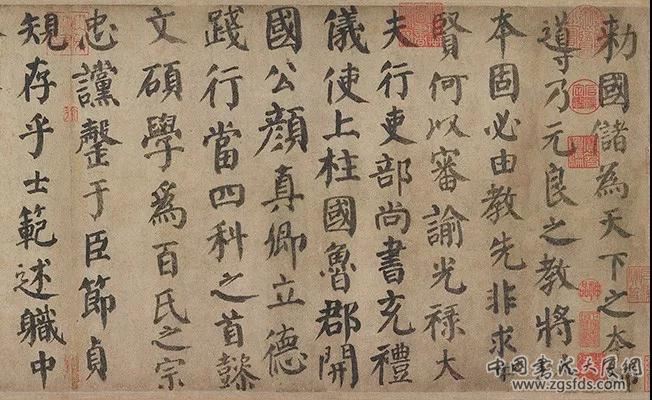 勑國儲為天下之本
導乃元良之教將
本固必由教先非求
賢何以審諭光祿大
夫行吏部尚書充禮
儀使上柱國魯郡開
國公顏真卿立德
踐行當四科之首懿
文碩學為百氏之宗
忠讜罄于臣節貞
規存乎士範述職中
www.zgsfds.com